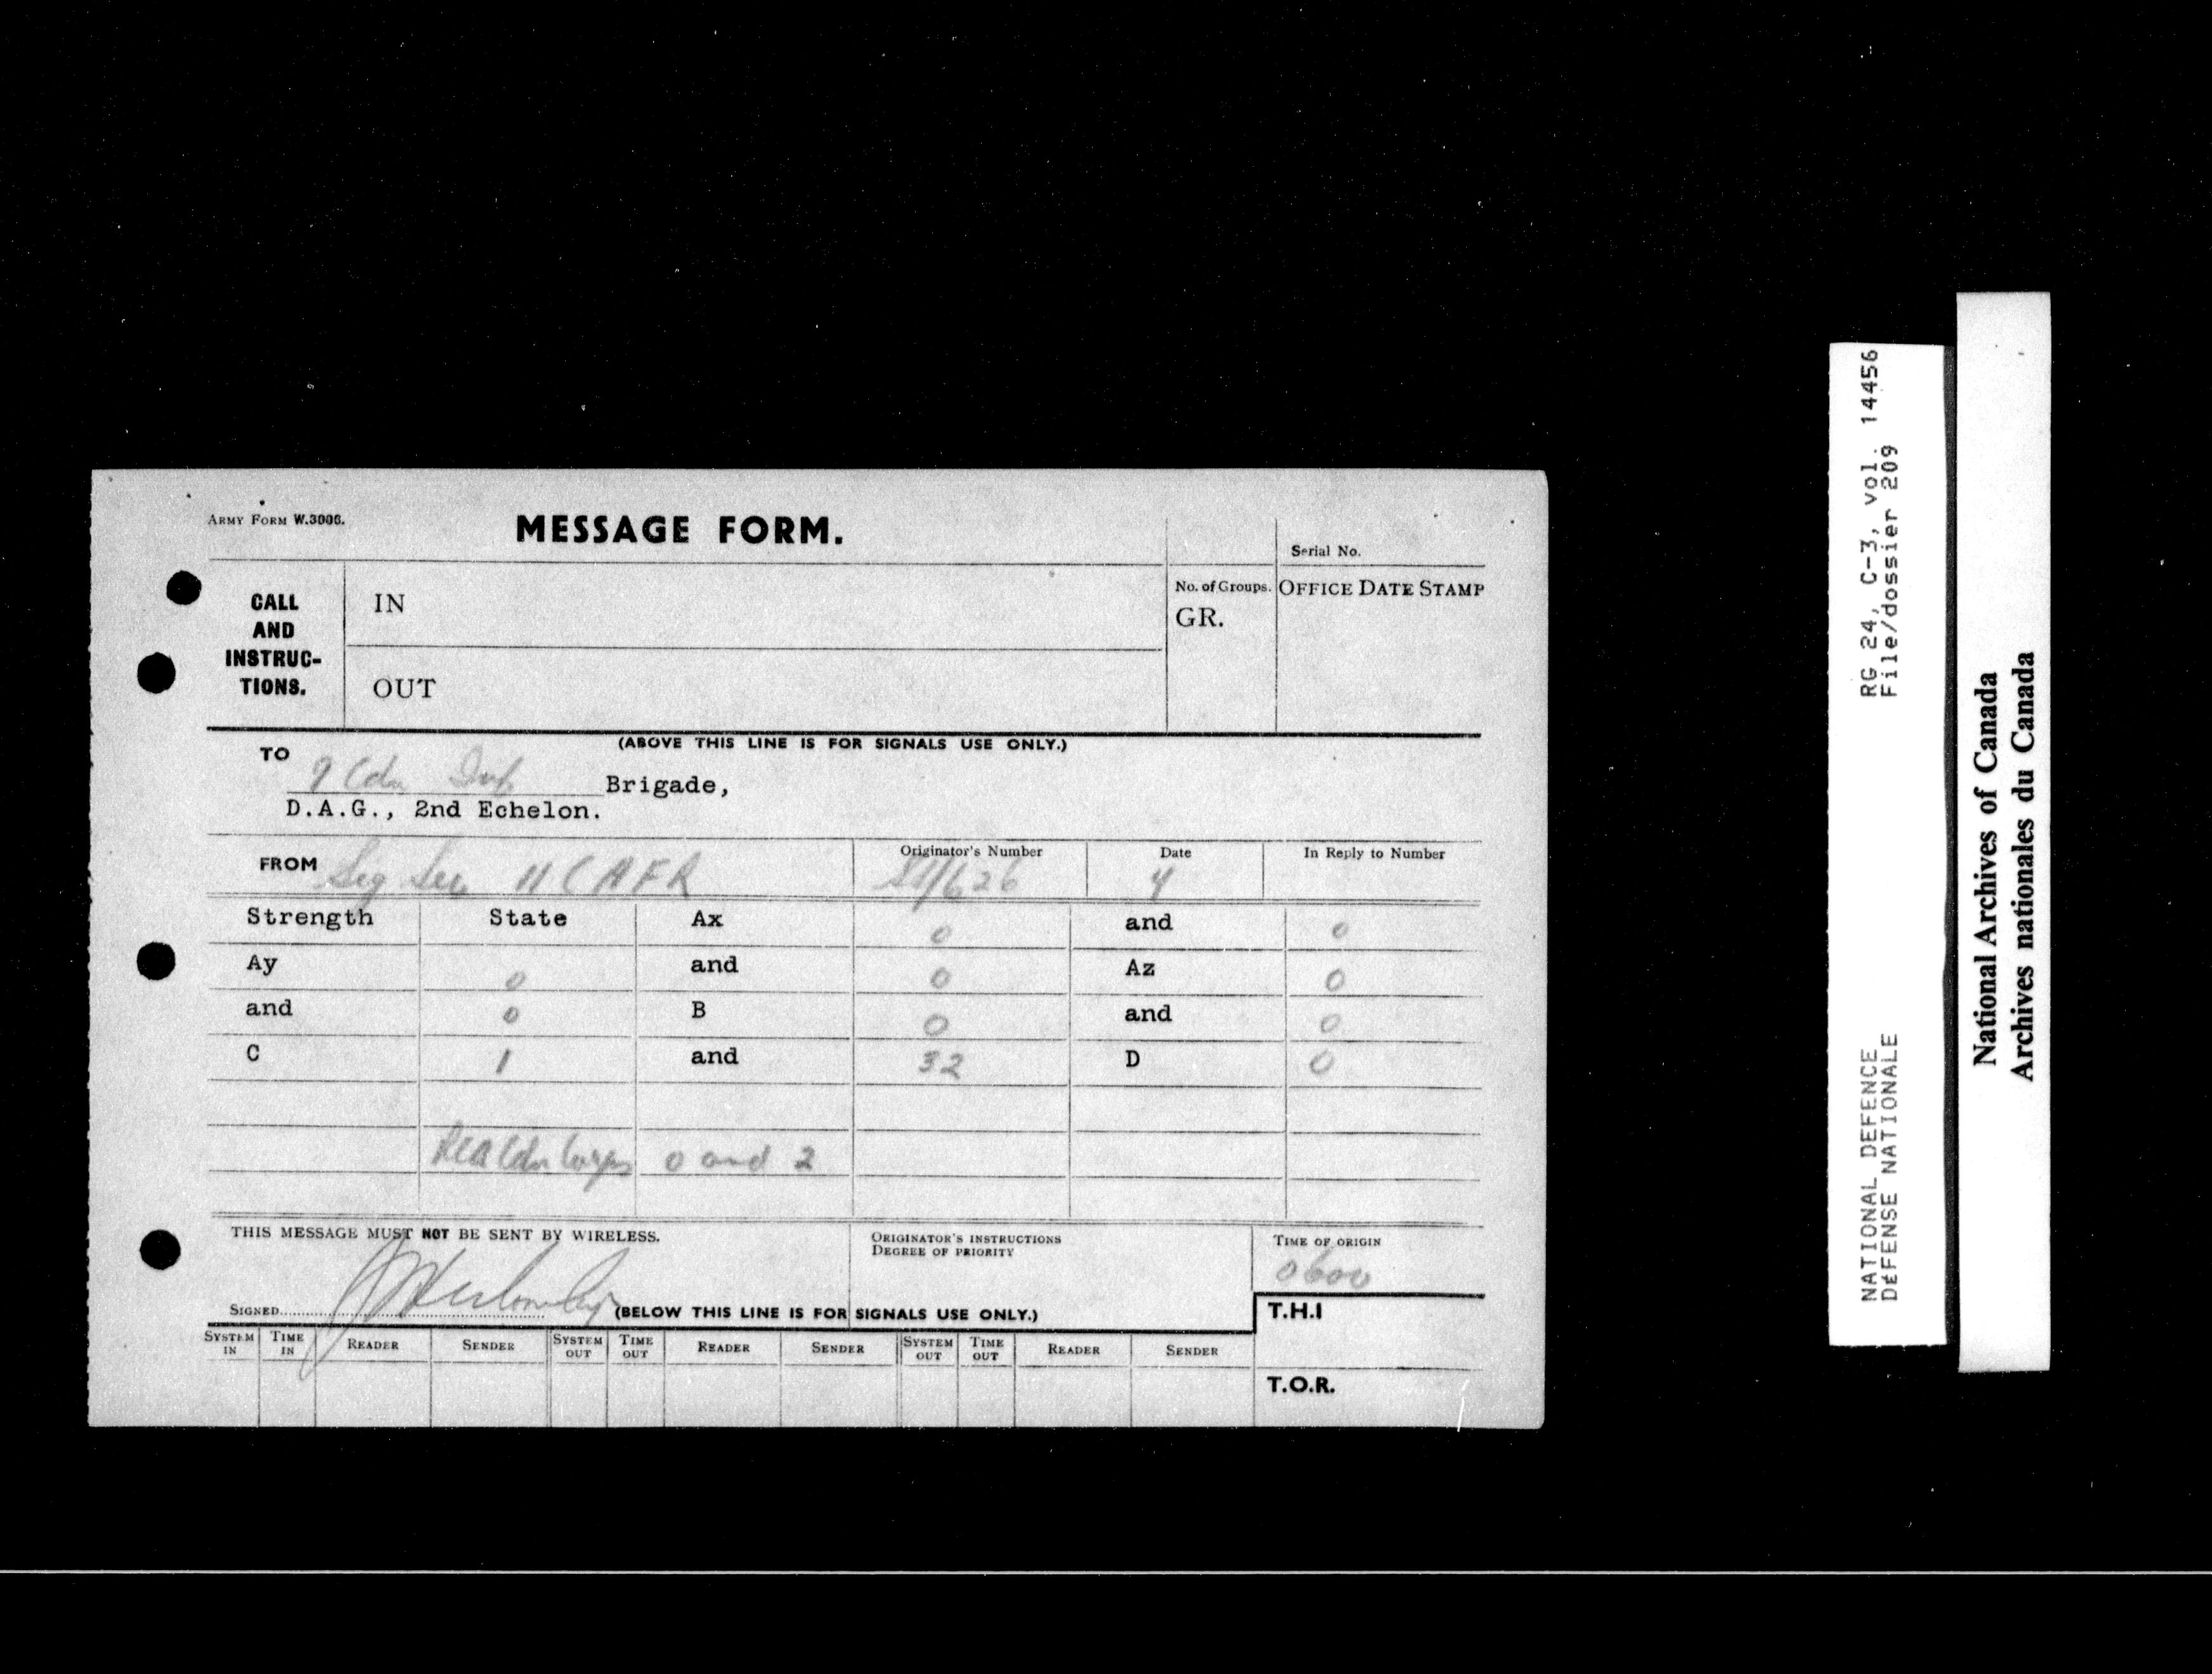 ARMY FORM W.3000.
MESSAGE FORM.
Serial No.
CALL
AND
INSTRUC-
TIONS.
IN
OUT
No. of Groups.
GR.
OFFICE DATE STAMP
(ABOVE THIS LINE IS FOR SIGNALS USE ONLY.)
TO
9 Cdn Inf Brigade,
D.A.G., 2nd Echelon.
FROM Sig Sec 11 CAFR
Originator's Number
/626
Date
4
In Reply to Number
Strength State Ax 0 and 0
Ay 0 and 0 Az 0
and 0 B 0 and 0
C 1 and 32 D 0
0 and 2
THIS MESSAGE MUST NOT BE SENT BY WIRELESS.
ORIGINATOR'S INSTRUCTIONS
DEGREE OF PRIORITY
TIME OF ORIGIN
0600
SIGNED
(BELOW THIS LINE IS FOR SIGNALS USE ONLY.)
T.H.I
SYSTEM IN TIME IN READER SENDER SYSTEM OUT TIME OUT READER SENDER SYSTEM OUT TIME OUT READER SENDER
T.O.R.
RG 24, C-3, vol. 14456
File/dossier 209
NATIONAL DEFENCE
DÉFENSE NATIONALE
National Archives of Canada
Archives nationales du Canada